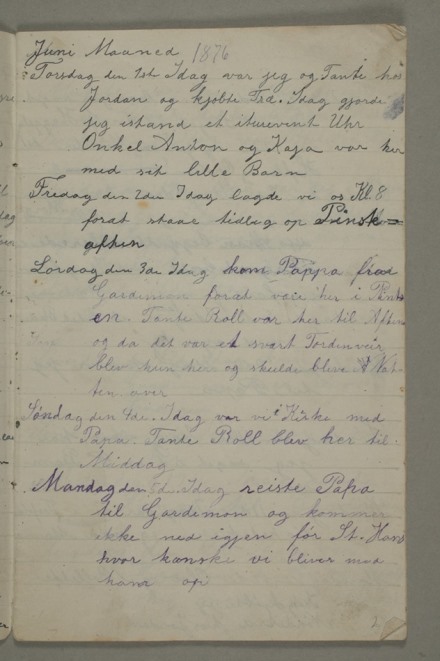 Juni Maaned 1876
Torsdag den 1st Idag var jeg og Tante hos
Jordan og kjøbte Trd. Idag gjorde
jeg istand et iturevint Uhr
Onkel Anton og Kaja var her
med sit lille Barn
Fredag den 2den Idag lagde vi os Kl. 8
foråt staae tidlig op Pinsk=
aften
Lørdag den 3de Idag kom Pappa frad
Gardemoen foråt være her i Pints
en. Tante Roll var her til Aften
og da det var et svært Tordenveir
blev hun her og skulde blive Nat-
ten over
Søndag den 4de. Idag var vi i Kirke med
Papa. Tante Roll blev her til
Middag
Mandag den 5d. Idag reiste Papa
til Gardemon og kommer
ikke ned igjen før St. Hans
hvor kanske vi bliver med
ham op